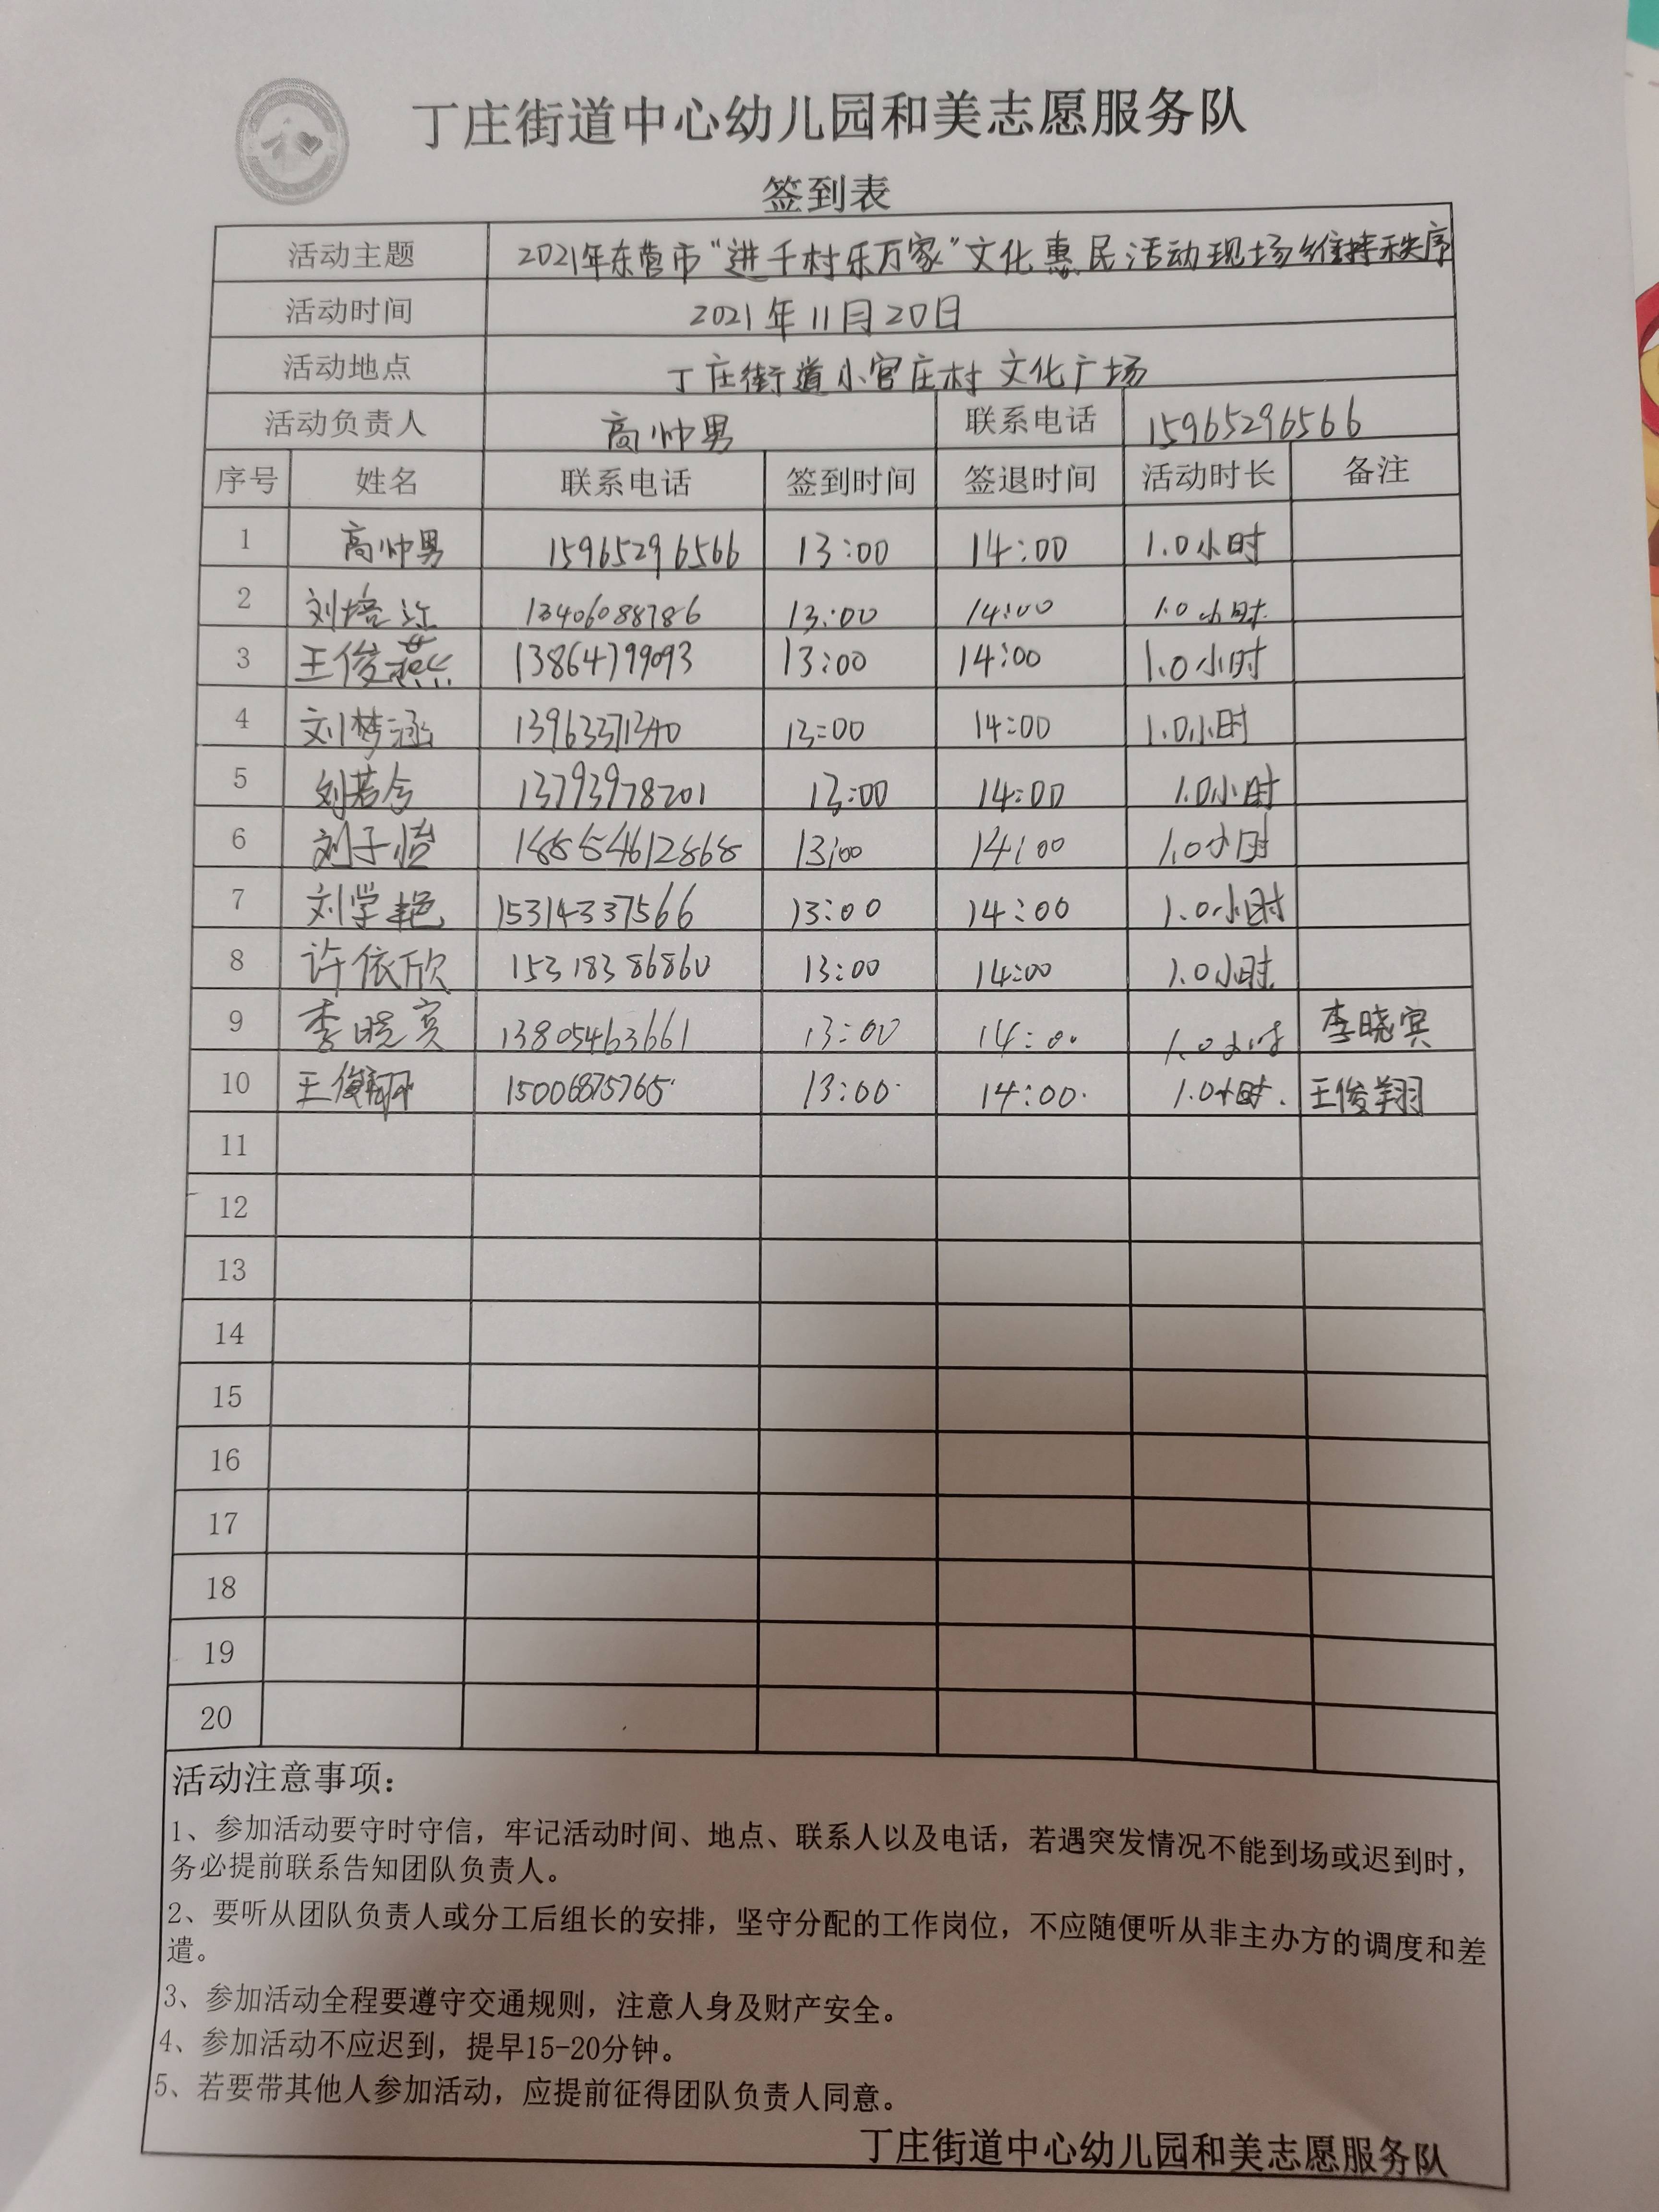 丁庄街道中心幼儿园和美志愿服务队
签到表
活动主题 2021年东营市“进千村乐万家”文化惠民活动现场维持秩序
活动时间 2021年11月20日
活动地点 丁庄街道小官庄村文化广场
活动负责人 高帅男 联系电话 15965296566
序号 姓名 联系电话 签到时间 签退时间 活动时长 备注
1 高帅男 15965296566 13:00 14:00 1.0小时
2 刘培 13406088786 13:00 14:00 1.0小时.
3 王俊燕 13864799093 13:00 14:00 1.0小时
4 刘梦涵 13963371340 13:00 14:00 1.0小时
5 刘若含 13793978201 13:00 14:00 1.0小时
6 刘子怡 13:00 14:00 1.0小时
7 刘学艳 15314337566 13:00 14:00 1.0小时
8 许依欣 15318386860 13:00 14:00 1.0小时.
9 李晓宾 13805463661 13:00 14:00 1.0小时 李晓宾
10 王俊翔 15006875765 13:00 14:00. 1.0小时. 王俊翔
11
12
13
14
15
16
17
18
19
20
活动注意事项：
1、参加活动要守时守信，牢记活动时间、地点、联系人以及电话，若遇突发情况不能到场或迟到时，
务必提前联系告知团队负责人。
2、要听从团队负责人或分工后组长的安排，坚守分配的工作岗位，不应随便听从非主办方的调度和差
遣。
3、参加活动全程要遵守交通规则，注意人身及财产安全。
4、参加活动不应迟到，提早15-20分钟。
5、若要带其他人参加活动，应提前征得团队负责人同意。
丁庄街道中心幼儿园和美志愿服务队